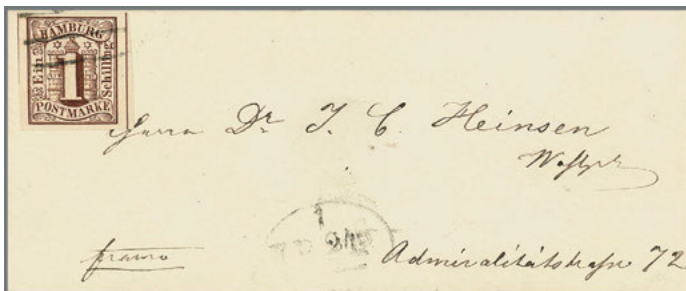 HAMBURG
Ein
1
Schilling
POSTMARKE
Herrn Dr J. C. Heinsen
franco
Admiralitätstraße 72